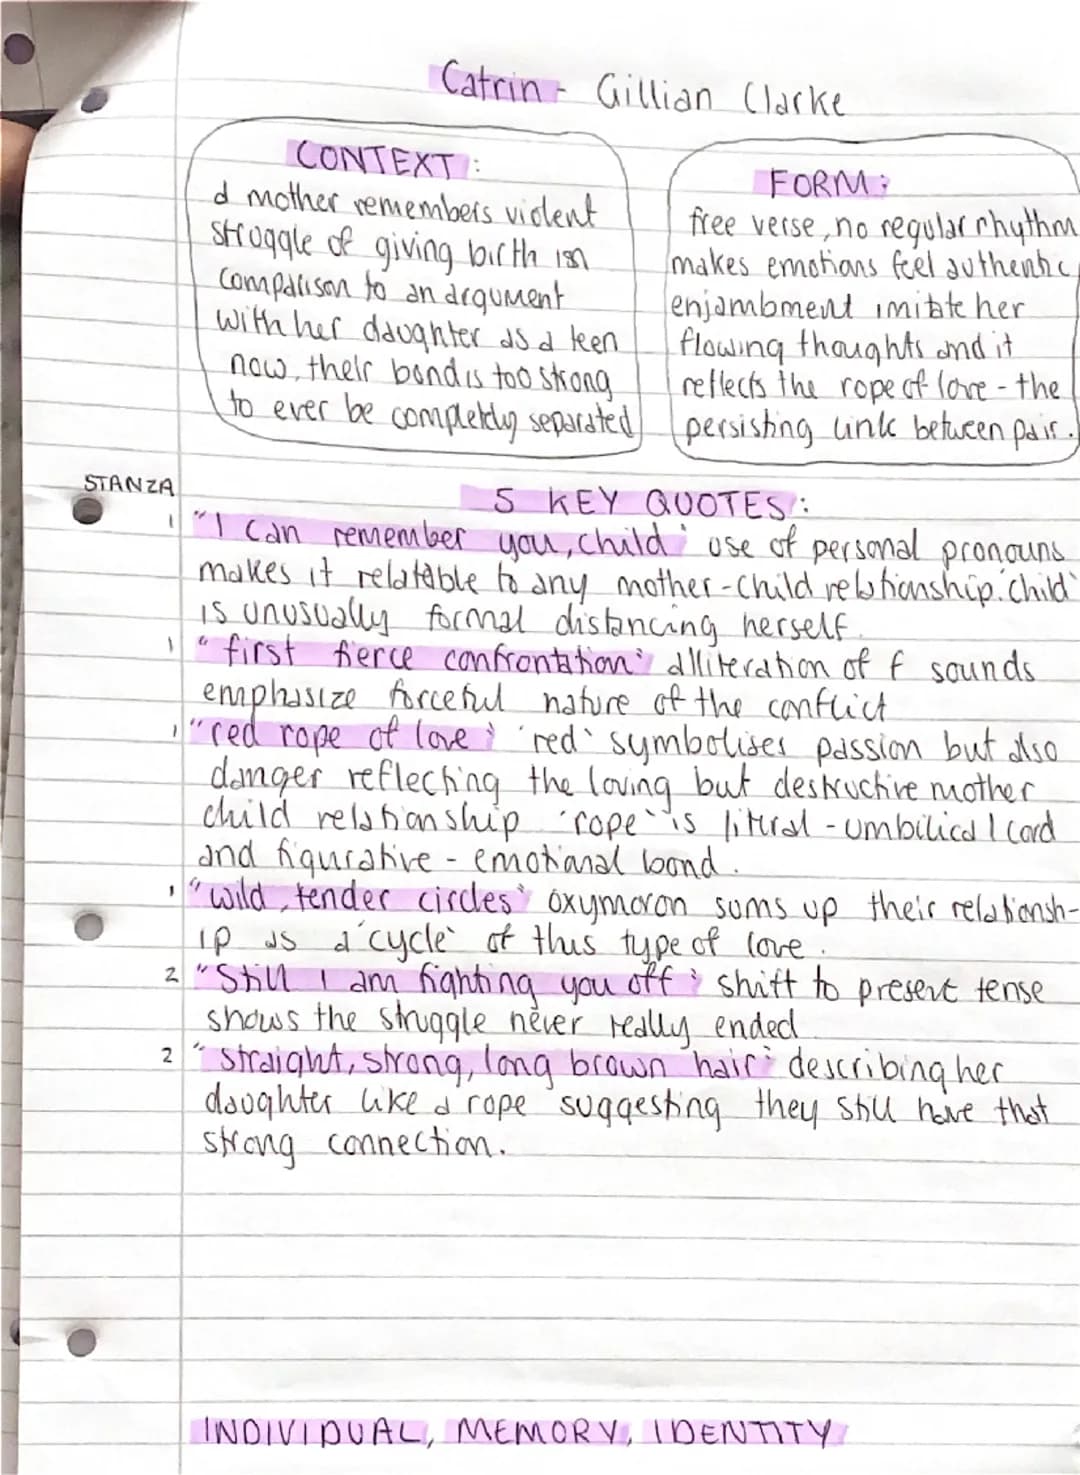 Catrin - Gillian Clarke
CONTEXT:
a mother remembers violent
struggle of giving birth in
comparison to an argument
with her daughter as a teen
now, their bond is too strong
to ever be completely separated
FORM:
free verse, no regular rhythm
makes emotions feel authentic
enjambment imitate her
flowing thoughts and it
reflects the rope of love - the
persisting link between pair.
STANZA
5 KEY QUOTES:
1 "I can remember you, child" use of personal pronouns
makes it relatable to any mother-child relationship. 'child'
is unusually formal distancing herself.
1 "first fierce confrontation" alliteration of f sounds
emphasize forceful nature of the conflict
1 "red rope of love" 'red' symbolises passion but also
danger reflecting the loving but destructive mother
child relationship 'rope' is literal - umbilical cord
and figurative - emotional bond.
1 "wild, tender circles" oxymoron sums up their relationsh-
ip as a 'cycle' of this type of love.
2 "Still I am fighting you off" shift to present tense
shows the struggle never really ended
2 "straight, strong, long brown hair" describing her
daughter like a rope suggesting they still have that
strong connection.
INDIVIDUAL, MEMORY, IDENTITY